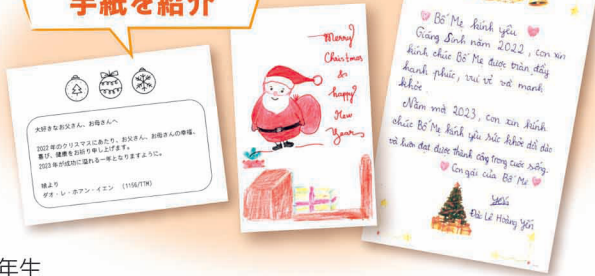 手紙を紹介
大好きなお父さん、お母さんへ
2022年のクリスマスにあたり、お父さん、お母さんの幸福、
喜び、健康をお祈り申し上げます。
2023年が成功に溢れる一年となりますように。
娘より
ダオ・レ・ホアン・イエン (1156/TTM)
Merry
Christmas
&
happy
New
Year
Bố Mẹ kính yêu
Giáng Sinh năm 2022, con xin
kính chúc Bố Mẹ được tràn đầy
hạnh phúc, vui vẻ và mạnh
khỏe.
Năm mới 2023, con xin kính
chúc Bố Mẹ kính yêu sức khỏe dồi dào
và luôn đạt được thành công trong cuộc sống.
Con gái của Bố Mẹ
Yến
Đào Lê Hoàng Yến
年生